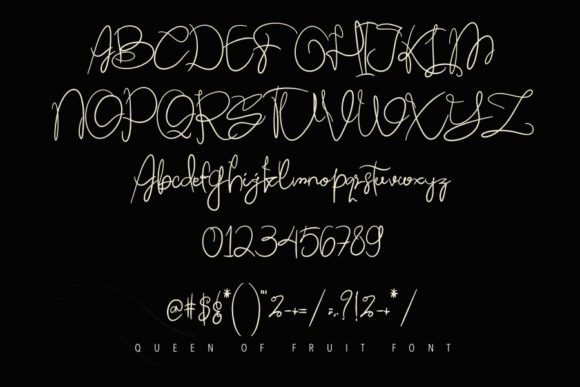 ABCDEFGHIJKLM
NOPQRSTUVWXYZ
Abcdefghijklmnopqrstuvwxyz
0123456789
@#$&*()"%-+=/:,.?!%-+*/
QUEEN OF FRUIT FONT